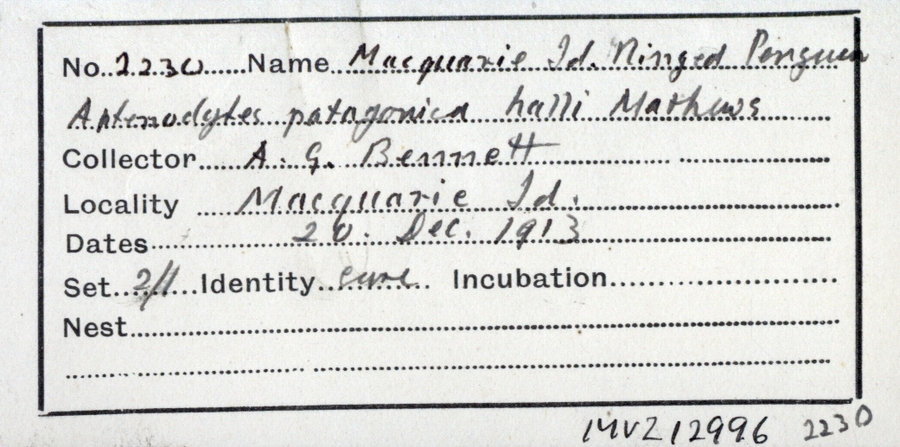 No. 2230 Name Macquarie Id. Ringed Penguin
Aptenodytes patagonica halli Mathews
Collector A. G. Bennett
Locality Macquarie Id.
Dates 20. Dec. 1913
Set 2/1 Identity sure Incubation
Nest
MVZ12996 2230